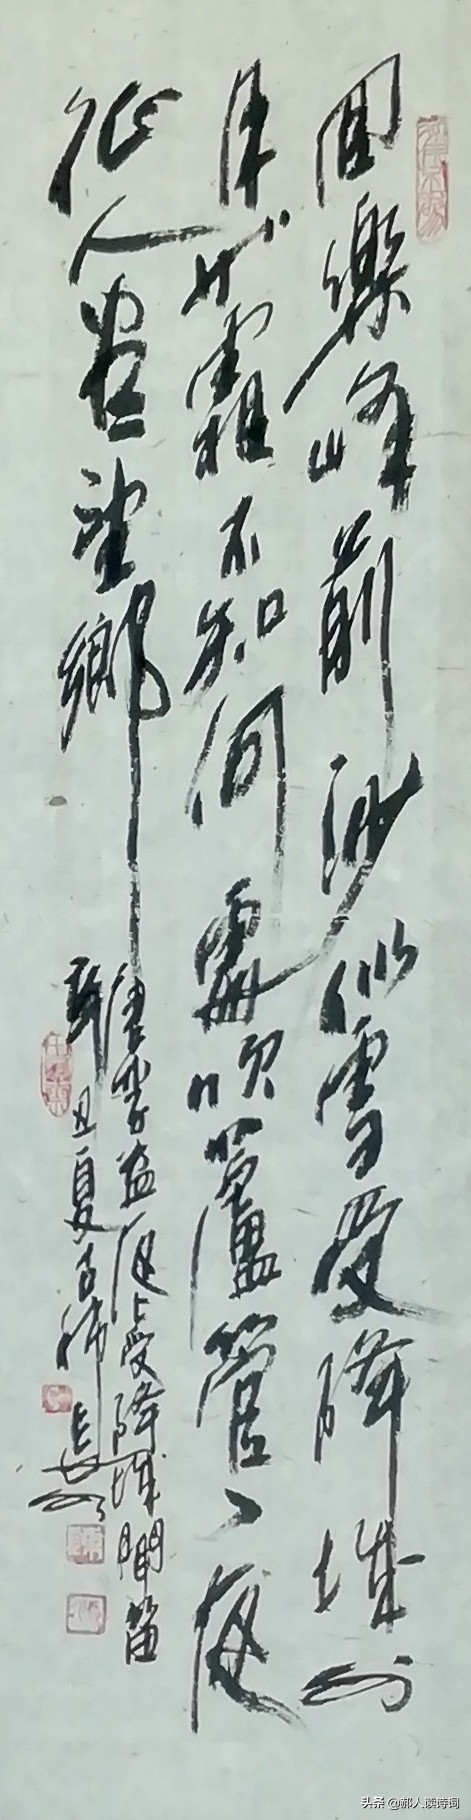 回樂峰前沙似雪受降城外
月如霜不知何處吹蘆管一夜
征人盡望鄉
唐李益夜上受降城聞笛
辛丑夏古稀
头条 @郝人读诗词